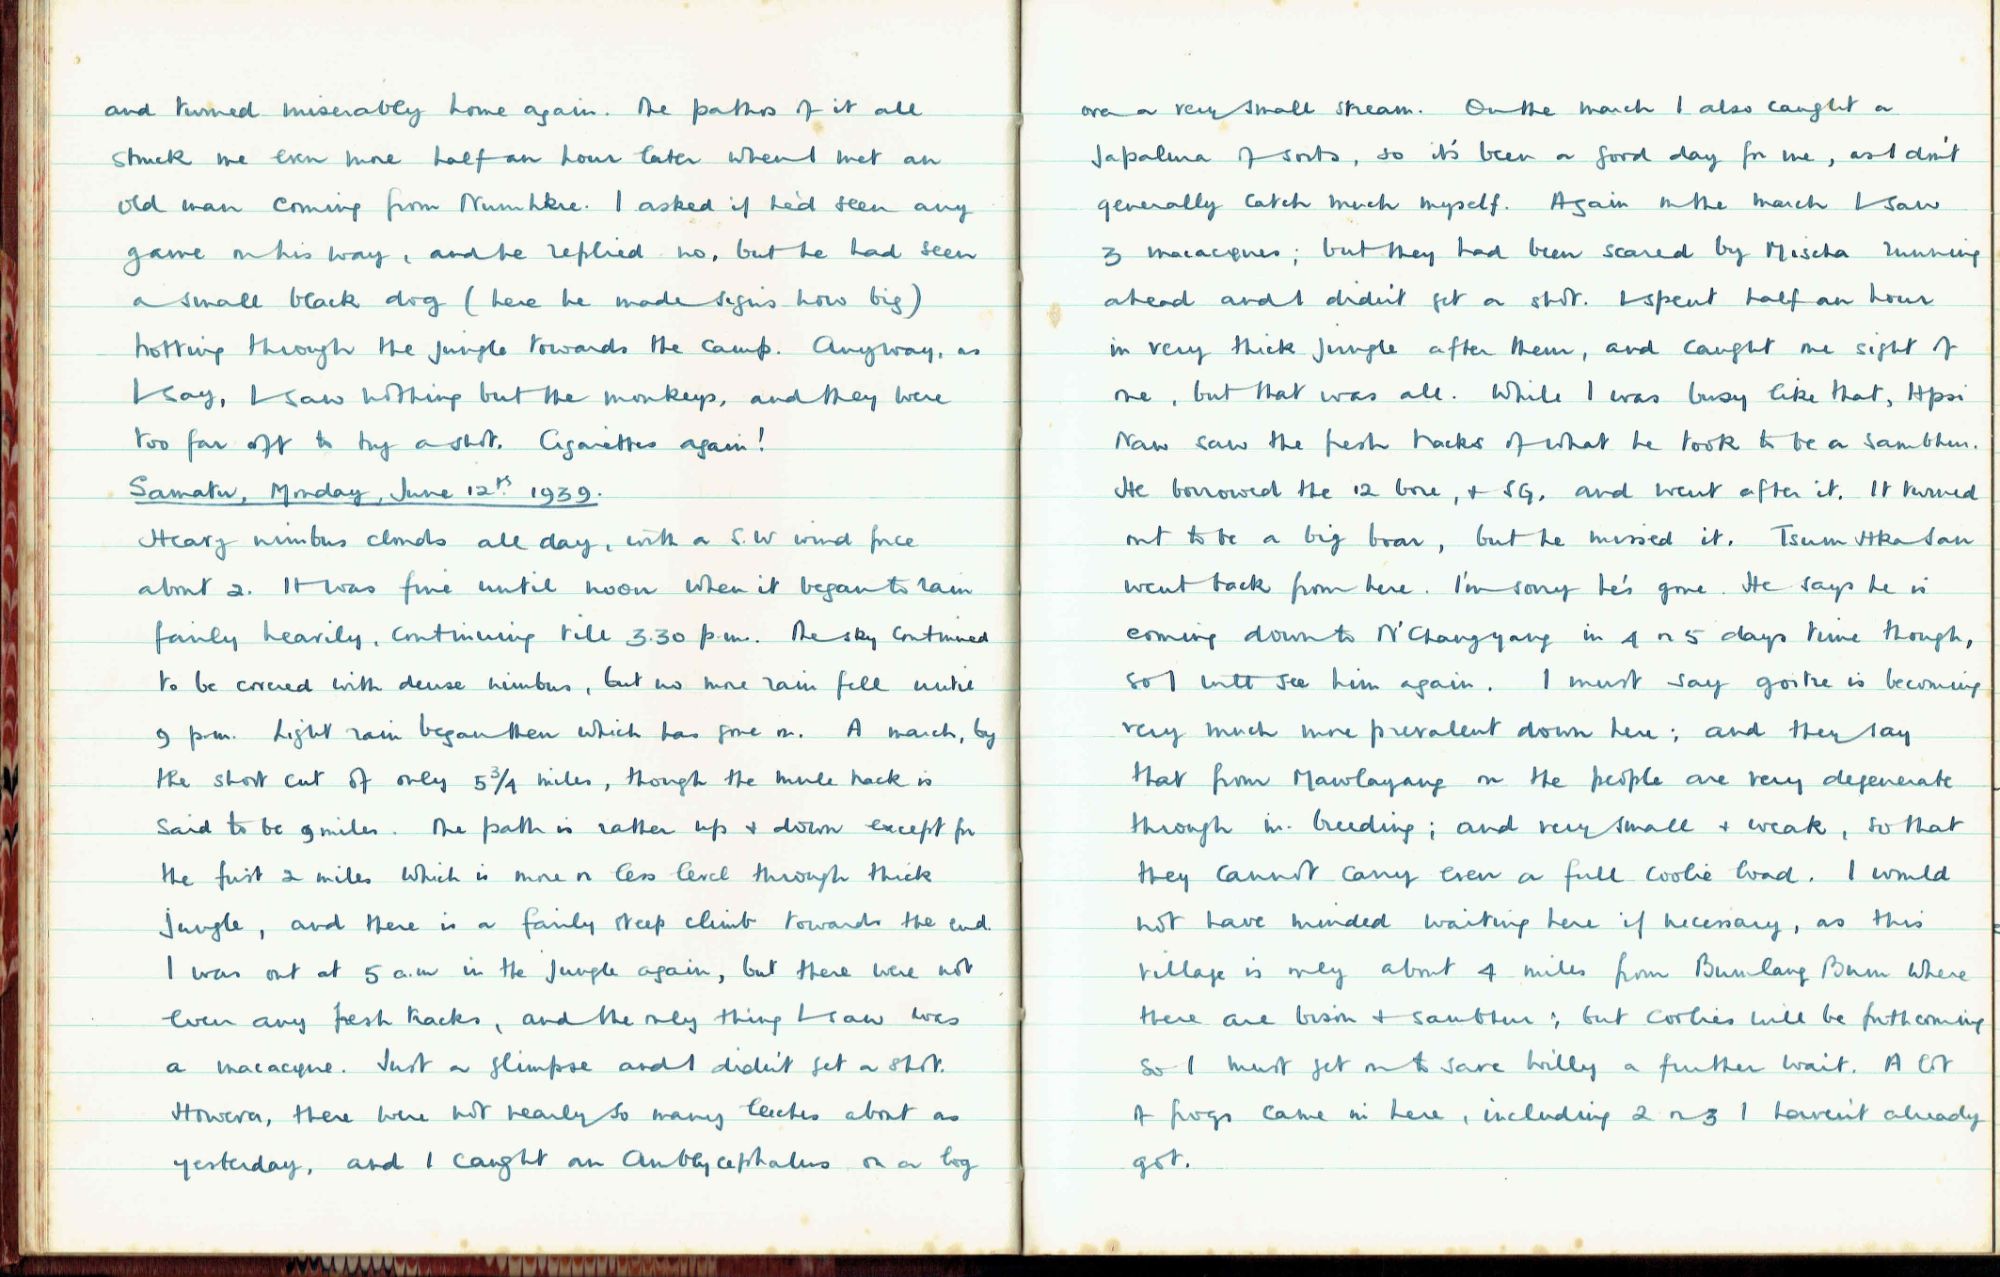 and turned miserably home again. The pathos of it all
struck me even more half an hour later when I met an
old man coming from Numhkre. I asked if he'd seen any
game on his way, and he replied no, but he had seen
a small black dog (here he made signs how big)
trotting through the jungle towards the camp. Anyway, as
I say, I saw nothing but the monkeys, and they were
too far off to try a shot. Cigarettes again!
Samatu, Monday, June 12th 1939.
Heavy nimbus clouds all day, with a S.W wind force
about 2. It was fine until noon when it began to rain
fairly heavily, continuing till 3.30 p.m. The sky continued
to be covered with dense nimbus, but no more rain fell until
9 p.m. Light rain began then which has gone on. A march, by
the short cut of only 5 3/4 miles, though the mule track is
said to be 9 miles. The path is rather up & down except for
the first 2 miles which is more or less level through thick
jungle, and there is a fairly steep climb towards the end.
I was out at 5 a.m in the jungle again, but there were not
even any fresh tracks, and the only thing I saw was
a macacque. Just a glimpse and I didn't get a shot.
However, there were not nearly so many leeches about as
yesterday, and I caught an Amblycephalus on a log
over a very small stream. On the march I also caught a
Japalura of sorts, so it's been a good day for me, as I don't
generally catch much myself. Again on the march I saw
3 macacques; but they had been scared by Mischa running
ahead and I didn't get a shot. I spent half an hour
in very thick jungle after them, and caught one sight of
one, but that was all. While I was busy like that, Hpsi
Naw saw the fresh tracks of what he took to be a sambhur.
He borrowed the 12 bore, & SG. and went after it. It turned
out to be a big boar, but he missed it. Tsum Hka San
went back from here. I'm sorry he's gone. He says he is
coming down to N'Changyang in 4 or 5 days time though,
so I will see him again. I must say goitre is becoming
very much more prevalent down here; and they say
that from Mawlayang on the people are very degenerate
through in-breeding; and very small & weak, so that
they cannot carry even a full coolie load. I would
not have minded waiting here if necessary, as this
village is only about 4 miles from Bumlang Bum where
there are bison & sambhur; but coolies will be forthcoming
so I must get on to save Willy a further wait. A lot
of frogs came in here, including 2 or 3 I haven't already
got.